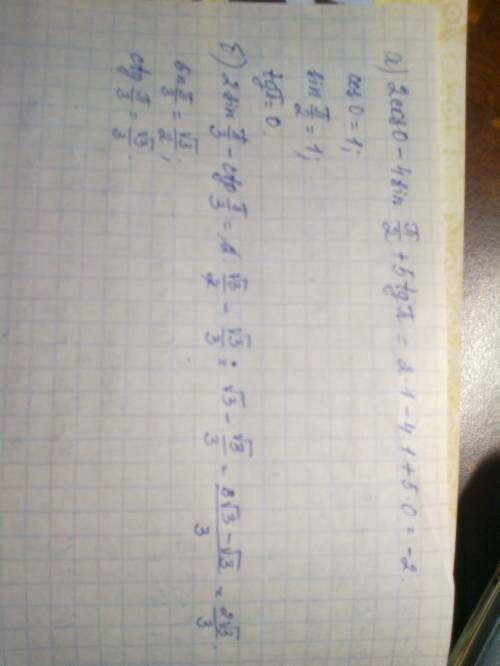 а) 2cos0 - 4sin π/2 + 5tgπ = 2·1 - 4·1 + 5·0 = -2.
cos0 = 1;
sin π/2 = 1;
tgπ = 0.
б) 2sin π/3 - ctg π/3 = 2 √3/2 - √3/3 = √3 - √3/3 = (3√3 - √3)/3 = 2√3/3.
sin π/3 = √3/2;
ctg π/3 = √3/3.